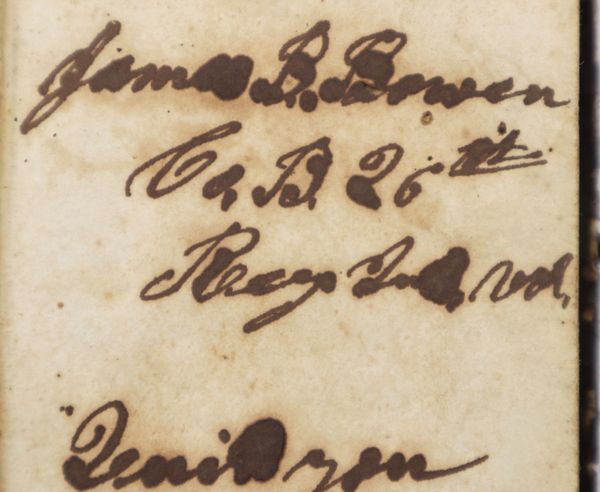 James B. Bowen
Co. B. 26th
Reg Ind. Vol.